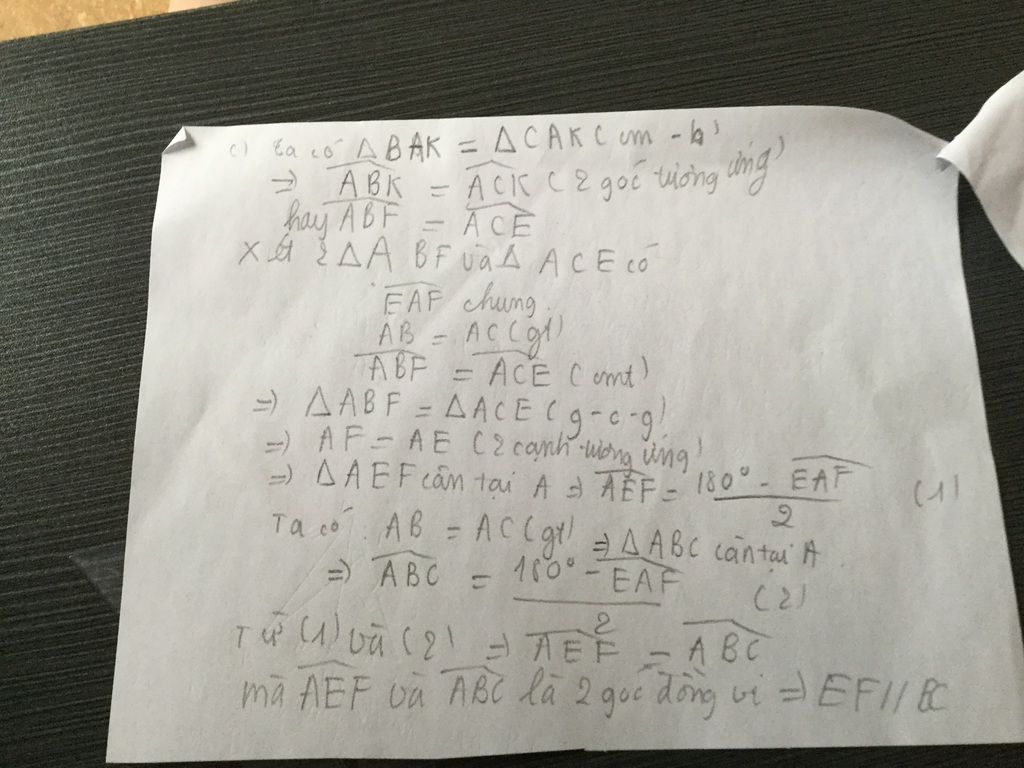 c) Ta có ΔBAK = ΔCAK (cm -b)
=> \widehat{ABK} = \widehat{ACK} (2 góc tương ứng)
hay \widehat{ABF} = \widehat{ACE}
Xét 2 ΔABF và Δ ACE có
\widehat{EAF} chung.
AB = AC (gt)
\widehat{ABF} = \widehat{ACE} (cmt)
=> ΔABF = ΔACE (g-c-g)
=> AF = AE (2 cạnh tương ứng)
=> ΔAEF cân tại A => \widehat{AEF} = \frac{180° - \widehat{EAF}}{2} (1)
Ta có: AB = AC (gt) => ΔABC cân tại A
=> \widehat{ABC} = \frac{180° - \widehat{EAF}}{2} (2)
Từ (1) và (2) => \widehat{AEF} = \widehat{ABC}
mà \widehat{AEF} và \widehat{ABC} là 2 góc đồng vị => EF // BC